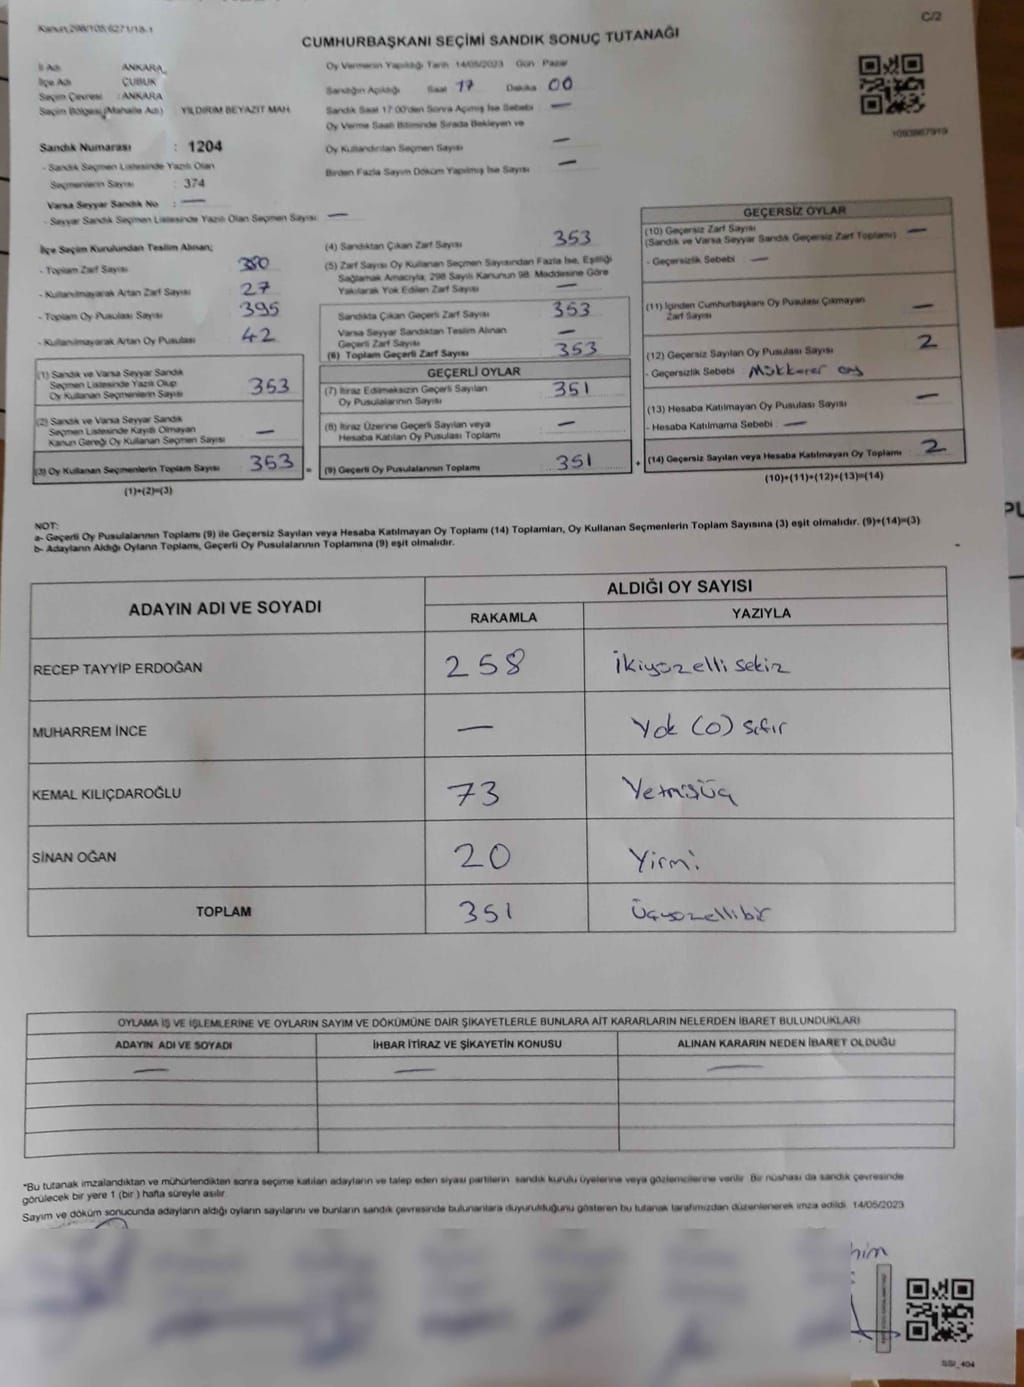 Kanun:298/105,6271/18-1
C/2
CUMHURBAŞKANI SEÇİMİ SANDIK SONUÇ TUTANAĞI
İl Adı ANKARA
İlçe Adı ÇUBUK
Seçim Çevresi : ANKARA
Seçim Bölgesi(Mahalle Adı) YILDIRIM BEYAZIT MAH.
Oy Vermenin Yapıldığı Tarih 14/05/2023 Gün Pazar
Sandığın Açıldığı Saat 17 Dakika 00
Sandık Saat 17:00'den Sonra Açımış İse Sebebi —
Oy Verme Saati Bitiminde Sırada Bekleyen ve
Oy Kullandırılan Seçmen Sayısı —
Birden Fazla Sayım Döküm Yapılmış İse Sayısı —
1093867919
Sandık Numarası : 1204
- Sandık Seçmen Listesinde Yazılı Olan
Seçmenlerin Sayısı : 374
Varsa Seyyar Sandık No : —
- Seyyar Sandık Seçmen Listesinde Yazılı Olan Seçmen Sayısı: —
İlçe Seçim Kurulundan Teslim Alınan;
- Toplam Zarf Sayısı 380
- Kullanılmayarak Artan Zarf Sayısı 27
- Toplam Oy Pusulası Sayısı 395
- Kullanılmayarak Artan Oy Pusulası 42
(1) Sandık ve Varsa Seyyar Sandık
Seçmen Listesinde Yazılı Olup
Oy Kullanan Seçmenlerin Sayısı 353
(2) Sandık ve Varsa Seyyar Sandık
Seçmen Listesinde Kayıtlı Olmayan
Kanun Gereği Oy Kullanan Seçmen Sayısı —
(3) Oy Kullanan Seçmenlerin Toplam Sayısı 353 =
(1)+(2)=(3)
(4) Sandıktan Çıkan Zarf Sayısı 353
(5) Zarf Sayısı Oy Kullanan Seçmen Sayısından Fazla İse, Eşitliği
Sağlamak Amacıyla, 298 Sayılı Kanunun 98. Maddesine Göre
Yakılarak Yok Edilen Zarf Sayısı —
Sandıkta Çıkan Geçerli Zarf Sayısı 353
Varsa Seyyar Sandıktan Teslim Alınan
Geçerli Zarf Sayısı —
(6) Toplam Geçerli Zarf Sayısı 353
GEÇERLİ OYLAR
(7) İtiraz Edilmeksizin Geçerli Sayılan
Oy Pusulalarının Sayısı 351
(8) İtiraz Üzerine Geçerli Sayılan veya
Hesaba Katılan Oy Pusulası Toplamı —
(9) Geçerli Oy Pusulalarının Toplamı 351 +
GEÇERSİZ OYLAR
(10) Geçersiz Zarf Sayısı —
(Sandık ve Varsa Seyyar Sandık Geçersiz Zarf Toplamı)
- Geçersizlik Sebebi —
(11) İçinden Cumhurbaşkanı Oy Pusulası Çıkmayan
Zarf Sayısı —
(12) Geçersiz Sayılan Oy Pusulası Sayısı 2
- Geçersizlik Sebebi Mükkerer oy
(13) Hesaba Katılmayan Oy Pusulası Sayısı —
- Hesaba Katılmama Sebebi : —
(14) Geçersiz Sayılan veya Hesaba Katılmayan Oy Toplamı 2
(10)+(11)+(12)+(13)=(14)
NOT:
a- Geçerli Oy Pusulalarının Toplamı (9) ile Geçersiz Sayılan veya Hesaba Katılmayan Oy Toplamı (14) Toplamları, Oy Kullanan Seçmenlerin Toplam Sayısına (3) eşit olmalıdır. (9)+(14)=(3)
b- Adayların Aldığı Oyların Toplamı, Geçerli Oy Pusulalarının Toplamına (9) eşit olmalıdır.
ADAYIN ADI VE SOYADI ALDIĞI OY SAYISI
RAKAMLA YAZIYLA
RECEP TAYYİP ERDOĞAN 258 İkiyüzelli sekiz
MUHARREM İNCE — Yok (0) sıfır
KEMAL KILIÇDAROĞLU 73 Yetmişüç
SİNAN OĞAN 20 Yirmi
TOPLAM 351 Üçyüzellibir
OYLAMA İŞ VE İŞLEMLERİNE VE OYLARIN SAYIM VE DÖKÜMÜNE DAİR ŞİKAYETLERLE BUNLARA AİT KARARLARIN NELERDEN İBARET BULUNDUKLARI
ADAYIN ADI VE SOYADI İHBAR İTİRAZ VE ŞİKAYETİN KONUSU ALINAN KARARIN NEDEN İBARET OLDUĞU
— — —
*Bu tutanak imzalandıktan ve mühürlendikten sonra seçime katılan adayların ve talep eden siyasi partilerin sandık kurulu üyelerine veya gözlemcilerine verilir. Bir nüshası da sandık çevresinde
görülecek bir yere 1 (bir ) hafta süreyle asılır.
Sayım ve döküm sonucunda adayların aldığı oyların sayılarını ve bunların sandık çevresinde bulunanlara duyurulduğunu gösteren bu tutanak tarafımızdan düzenlenerek imza edildi. 14/05/2023
him
SSI_404